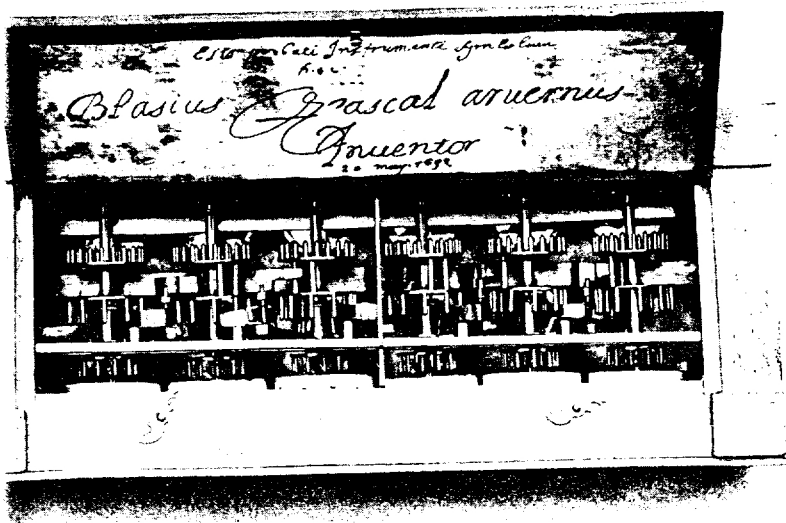 Esto
Instrumenti
hoc
Blasius Pascal aruernus
Inuentor
20 may 1652